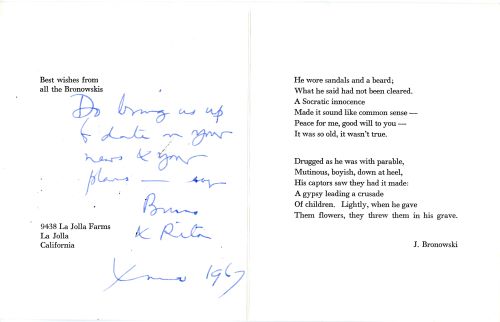 Best wishes from
all the Bronowskis
Do bring us up
to date on your
news & your
plans — say
Bruno
& Rita
9438 La Jolla Farms
La Jolla
California
Xmas 1967
He wore sandals and a beard;
What he said had not been cleared.
A Socratic innocence
Made it sound like common sense —
Peace for me, good will to you —
It was so old, it wasn't true.
Drugged as he was with parable,
Mutinous, boyish, down at heel,
His captors saw they had it made:
A gypsy leading a crusade
Of children. Lightly, when he gave
Them flowers, they threw them in his grave.
J. Bronowski